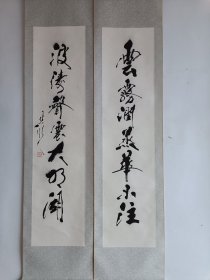 雲霧潤蒸華不注
波濤聲震大明湖